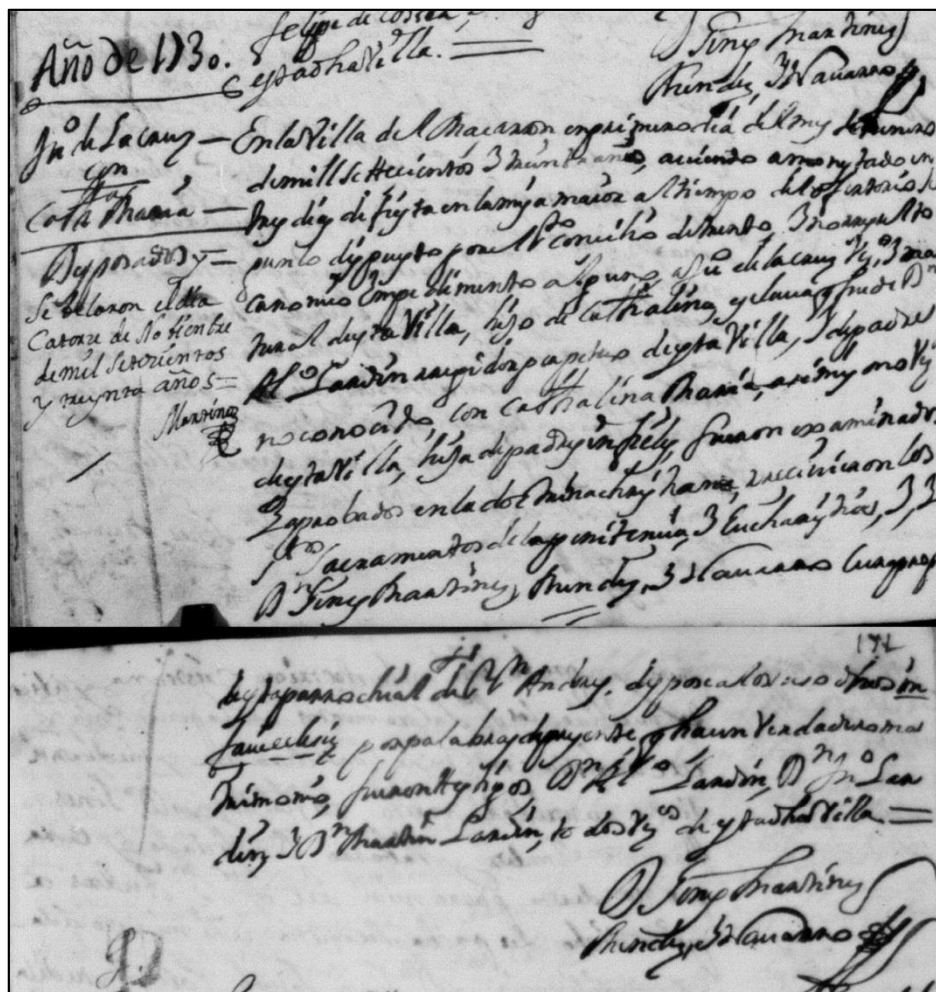 felipe de Correa,
estadhaVilla.
D Gines Martines
Mendez, 3 Navarro
Año de 1730.
Ju.º de Lacruz
con
Cath Maria
Desposados
Se belaron el dia
Catorze de Nobiembre
de mil Setezientos
y treynta años =
Martinez
En la Villa del Mazarron en primero dia del mes de henero
de mill Settecientos 3 treinta años, aviendo amonestado en
tres dias de fiesta en la misa maior al tiempo del ofertorio
dispuesto por el Sto concilio de trento, 3 no resulto
canonico Impedimento alguno, a Ju.º de la cruz Vº, 3 na
tural desta Villa, hijo de Cathalina, esclava q fue de Dn
Alº Landin rexidor perpetuo desta Villa, 3 de padre
no conocido, con Cathalina Maria, asi mysmo Vª
desta Villa, hija de padres infieles, fueron examinados
3 aprobados en la doctrina christiana, recivieron los
Stos Sacramentos de la penitencia, 3 Eucharistia, 3, 3
Dn Gines Martines, Mendez, 3 Navarro Cura prop
171
desta parrochial de Sn Andres, despose a los suso dhos in
facie eclesie por palabras de presente q haun Verdadero ma
trimonio, fueron testigos Dn Alº Landin, Dn Juº Lan
din, 3 Dn Martin Landin, todos Vzos de estadhaVilla.
D Gines Martines
Mendez, 3 Navarro